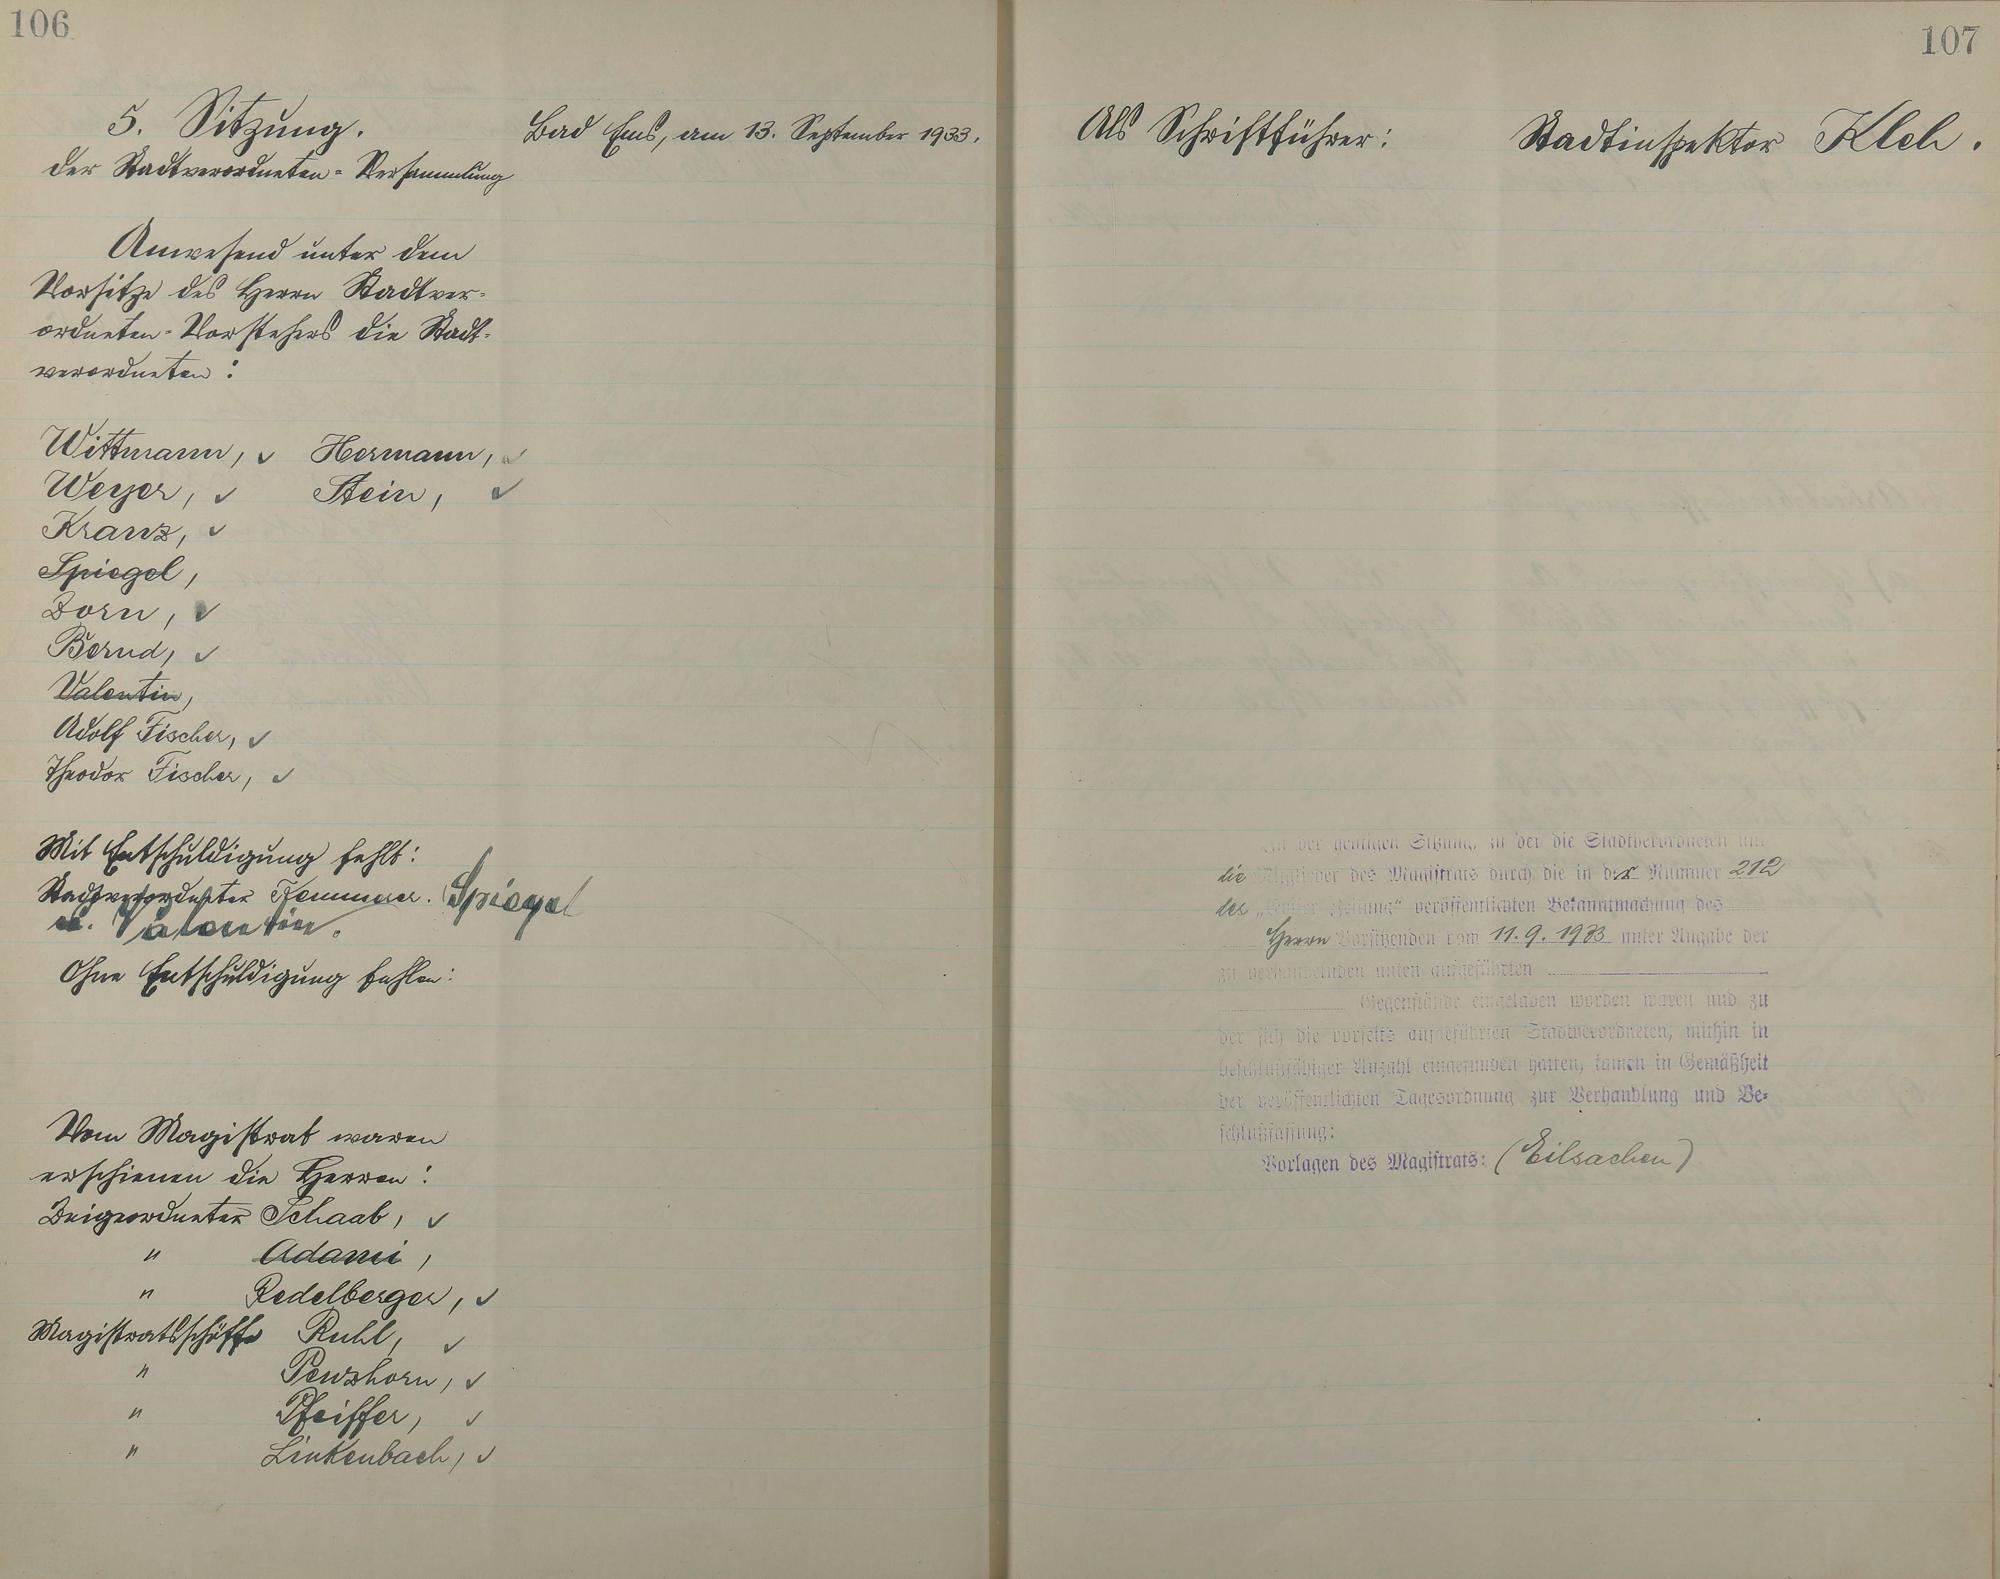 106
5. Sitzung.
der Stadtverordneten-Versammlung
Bad Ems, am 13. September 1933.
Anwesend unter dem
Vorsitze des Herrn Stadtver-
ordneten-Vorstehers die Stadt-
verordneten:
Wittmann, ✓ Hermann, ✓
Weyer, ✓ Stein, ✓
Kranz, ✓
Spiegel,
Dorn, ✓
Bernd, ✓
Valentin,
Adolf Fischer, ✓
Theodor Fischer, ✓
Mit Entschuldigung fehlt:
Stadtverordneter Spiegel
u. Valentin.
Ohne Entschuldigung fehlen:
Vom Magistrat waren
erschienen die Herren:
Beigeordneter Schaab, ✓
" Adami,
" Redelberger, ✓
Magistratsschöffe Ruhl, ✓
" Penzhorn, ✓
" Pfeiffer, ✓
" Linkenbach, ✓
107
Als Schriftführer: Stadtinspektor
der heutigen Sitzung, zu der die Stadtverordneten und
die Mitglieder des Magistrats durch die in der Nummer 212
der „Emser Zeitung" veröffentlichten Bekanntmachung des
Herrn Vorsitzenden vom 11.9.1933 unter Angabe der
zu verhandelnden unten aufgeführten
Gegenstände eingeladen worden waren und zu
der sich die vorseits aufgeführten Stadtverordneten, mithin in
beschlußfähiger Anzahl eingefunden hatten, kamen in Gemäßheit
der veröffentlichten Tagesordnung zur Verhandlung und Be-
schlußfassung:
Vorlagen des Magistrats: (Eilsachen)